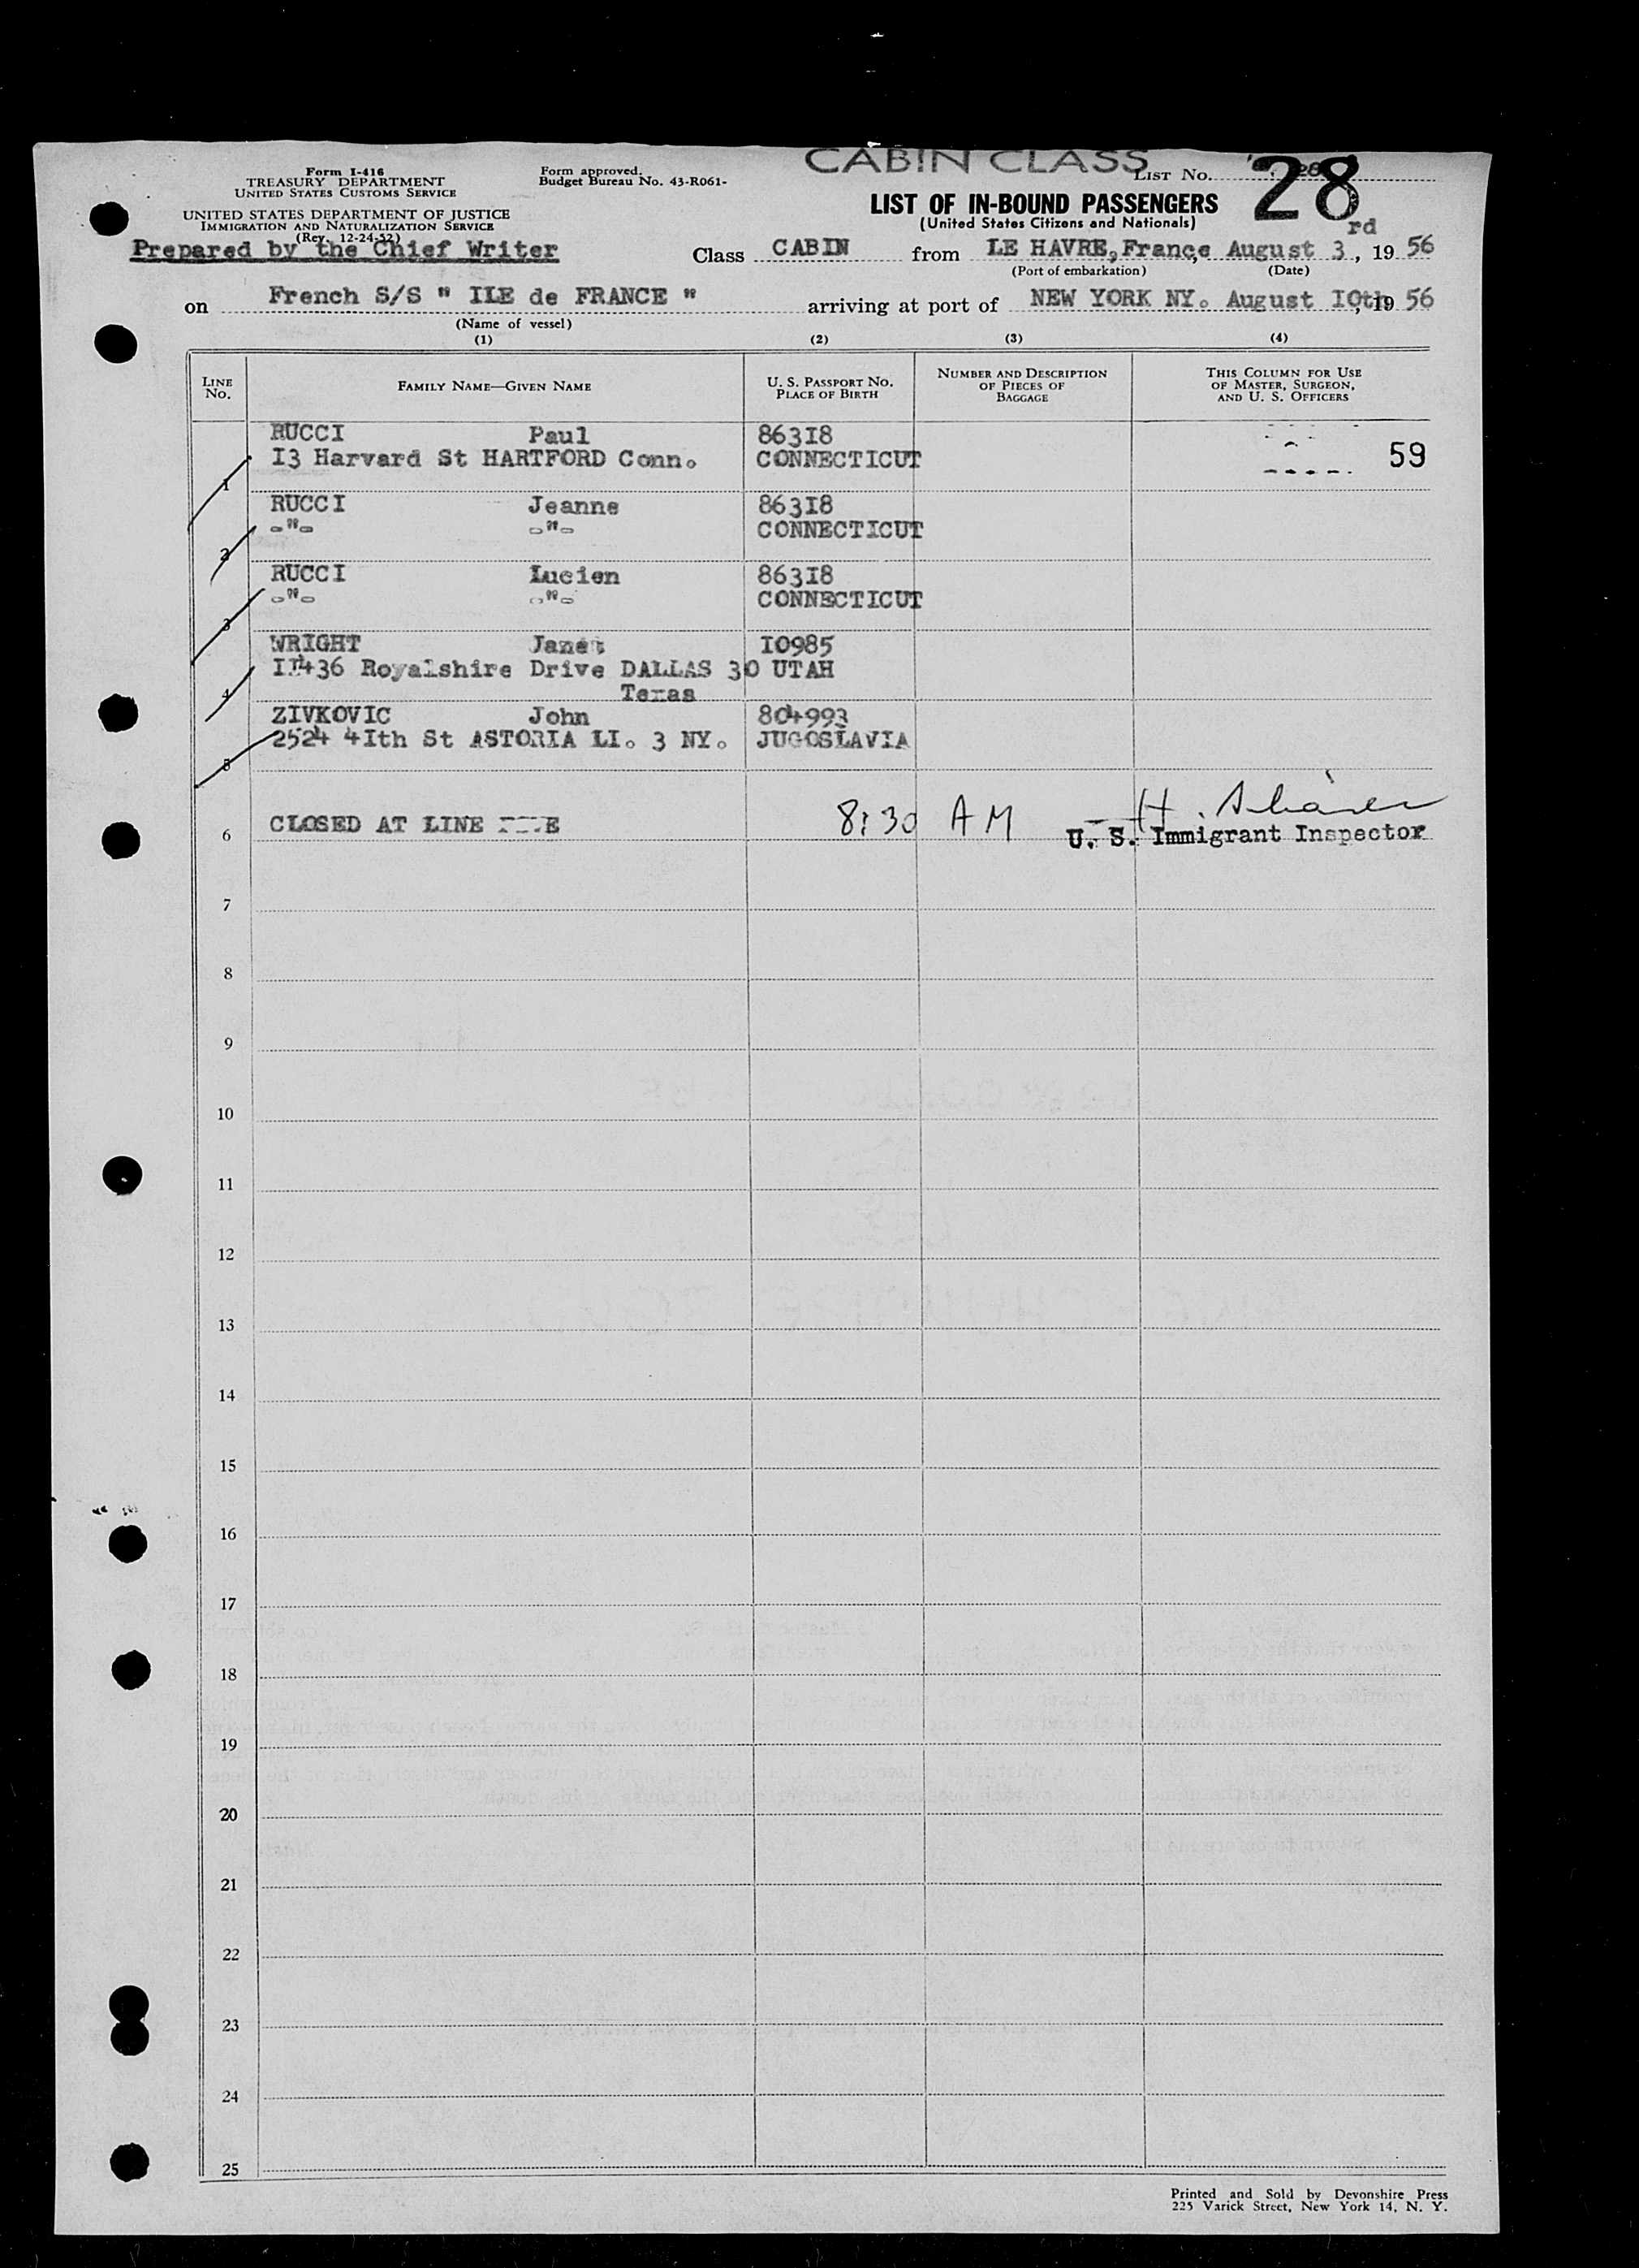 CABIN CLASS
Form I-416
TREASURY DEPARTMENT
UNITED STATES CUSTOMS SERVICE
Form approved.
Budget Bureau No. 43-R061-
LIST No. 28
28
UNITED STATES DEPARTMENT OF JUSTICE
IMMIGRATION AND NATURALIZATION SERVICE
(Rev. 12-24-52)
LIST OF IN-BOUND PASSENGERS
(United States Citizens and Nationals)
Prepared by the Chief Writer
Class CABIN from LE HAVRE, France, August 3rd, 1956
(Port of embarkation) (Date)
on French S/S " ILE de FRANCE " arriving at port of NEW YORK NY. August I0th, 1956
(Name of vessel)
(1) (2) (3) (4)
LINE No. FAMILY NAME—GIVEN NAME U. S. PASSPORT No. PLACE OF BIRTH NUMBER AND DESCRIPTION OF PIECES OF BAGGAGE THIS COLUMN FOR USE OF MASTER, SURGEON, AND U. S. OFFICERS
RUCCI Paul 863I8
I3 Harvard St HARTFORD Conn. CONNECTICUT 59
1
RUCCI Jeanne 863I8
-"- -"- CONNECTICUT
2
RUCCI Lucien 863I8
-"- -"- CONNECTICUT
3
WRIGHT Janet I0985
II436 Royalshire Drive DALLAS 30 UTAH
4 Texas
ZIVKOVIC John 804993
2524 4Ith St ASTORIA LI. 3 NY. JUGOSLAVIA
5
6 CLOSED AT LINE 8:30 AM H.
U. S. Immigrant Inspector
7
8
9
10
11
12
13
14
15
16
17
18
19
20
21
22
23
24
25
Printed and Sold by Devonshire Press
225 Varick Street, New York 14, N. Y.